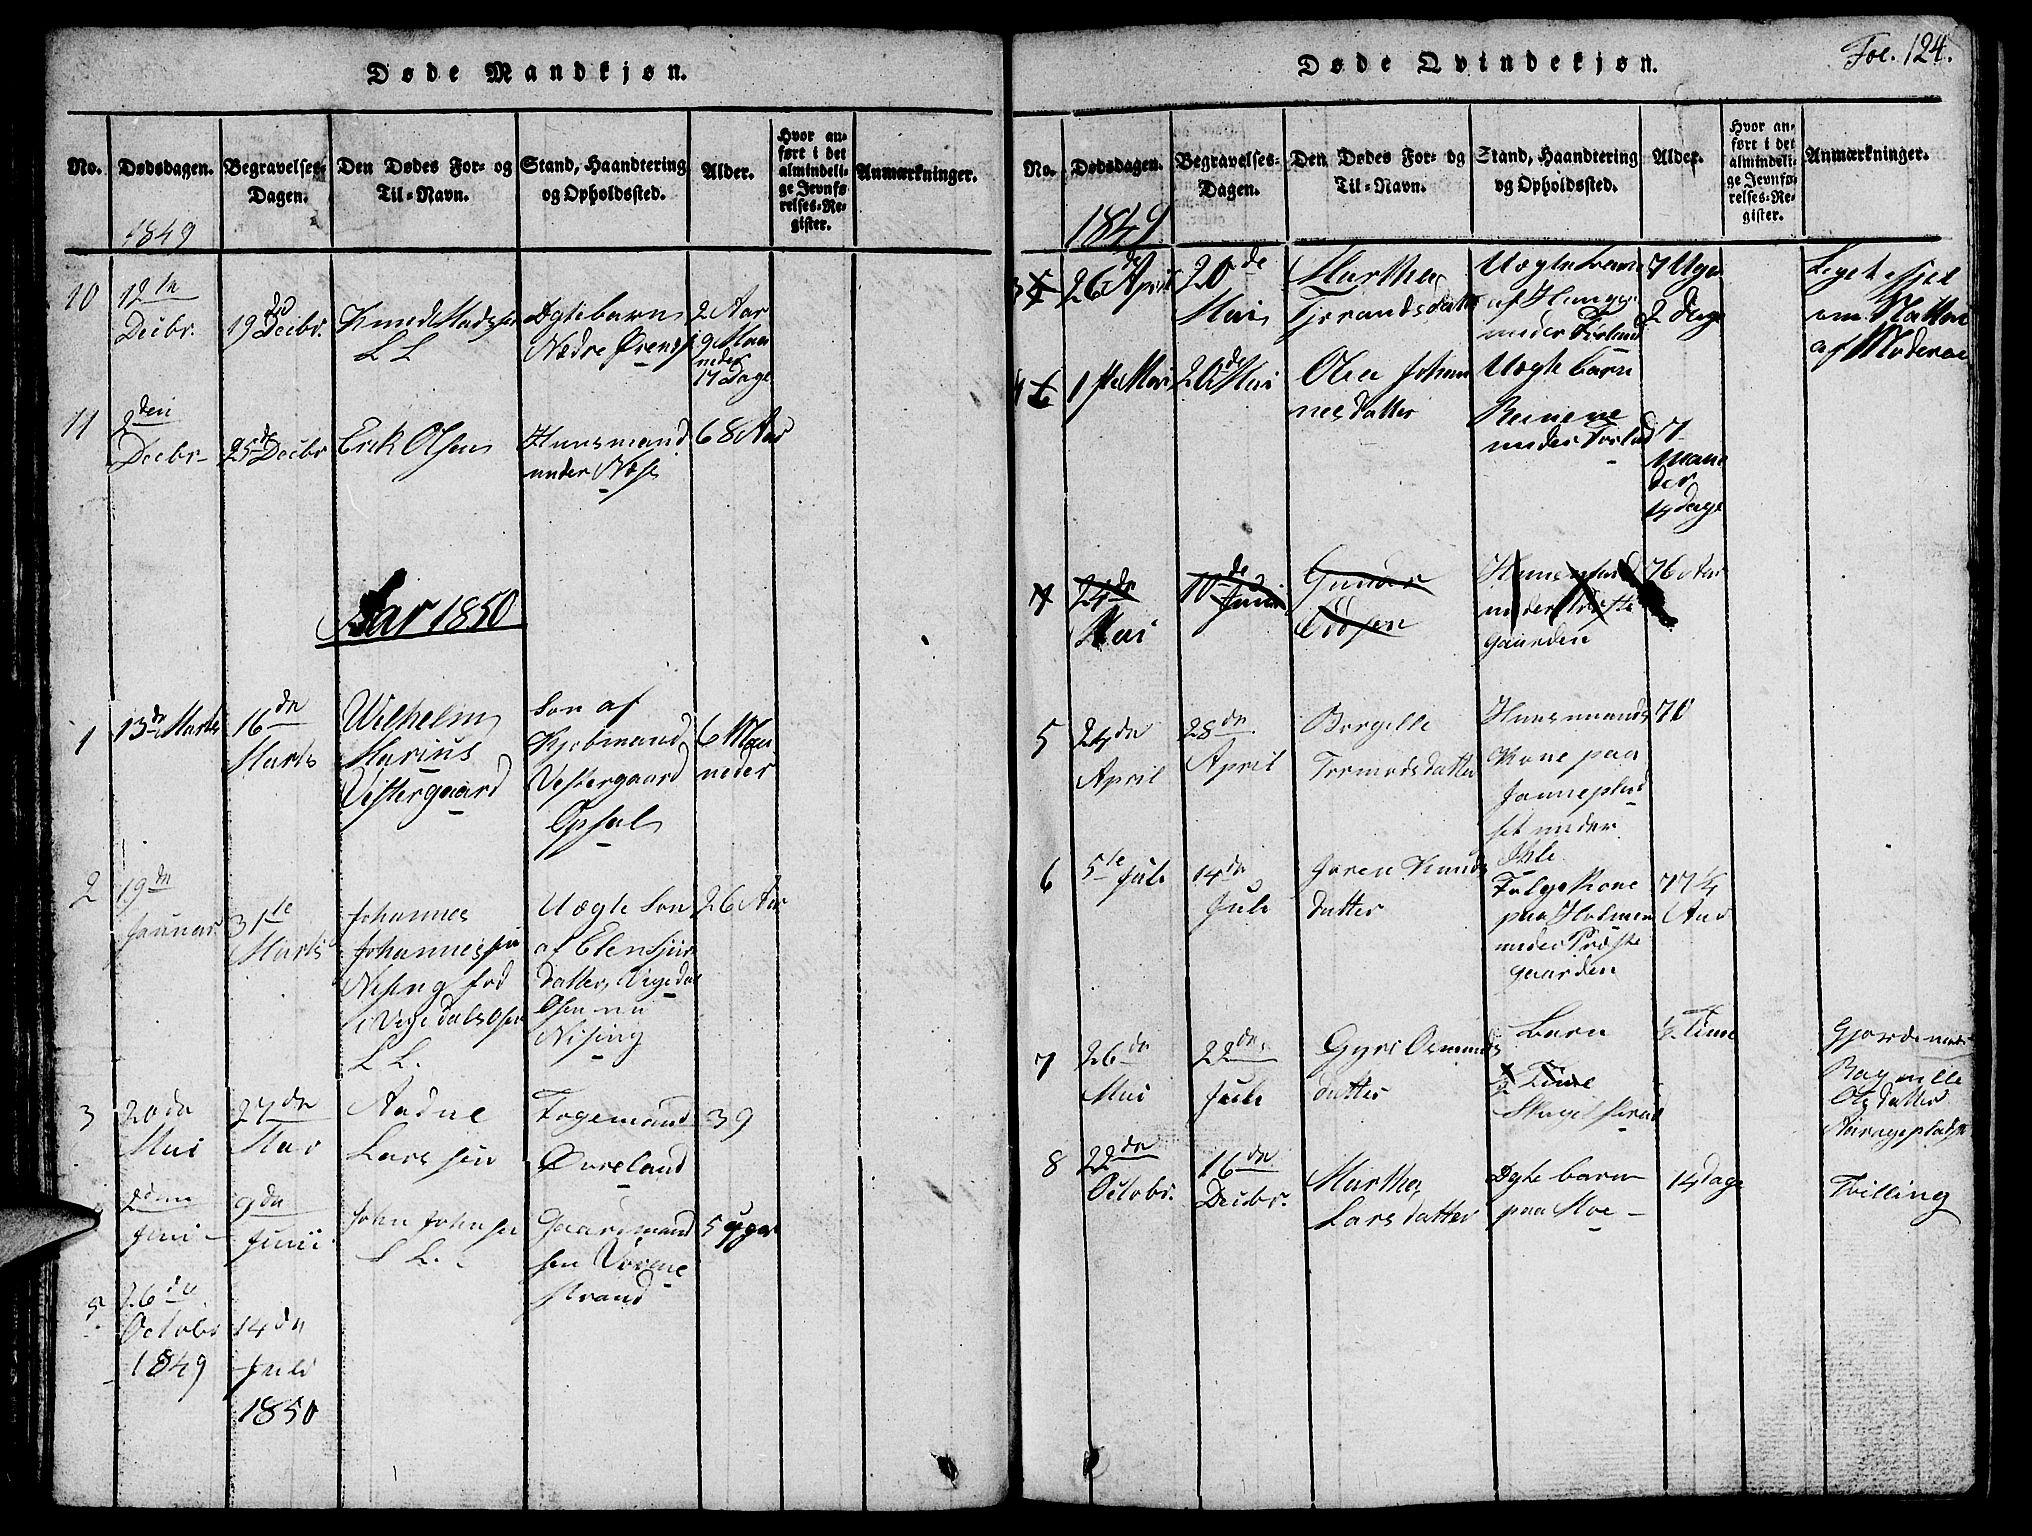 Døde Mandkjøn.
No.
Dødsdagen.
Begravelses-
Dagen.
Den Dødes For- og
Til-Navn.
Stand, Haandtering
og Opholdssted.
Alder.
Hvor an-
ført i det
almindeli-
ge Jevnfø-
relses-Re-
gister.
Anmærkninger.
1849
10
12te
Decbr.
19de Decbr.
Knud Madssen
L L
Ægtebarn
Nedre
2 Aar
9 Maa
neder
17 Dage
11
2den
Decbr
25de Decbr
Erik Olsen
Huusmand
under Næse
68 Aar
Aar 1850
1
13de Marts
16de
Marts
Wilhelm
Marius
Vestergaard
Søn af
Kjøbmand
Vestergaard
Opsal
6 Maa
neder
2
19de
Januar
31te
Marts
Johannes
Johannessen
Nising fød
i Vigedalsosen
L L.
Uægte Søn
af Elen Siur
datter Vigedal
Osen nu
Nising
26 Aar
3
20de
Mai
27de
Mai
Aadne
Larssen
Logemand
Øvreland
39
2den
Juni
9de
Junii
John Johnsen
L L.
Gaardmand
søn
strand
5 Uger
5
26de
Octobr
1849
14de
Juli
1850
Døde Qvindekjøn.
Fol. 124.
No.
Dødsdagen.
Begravelses-
Dagen.
Den Dødes For- og
Til-Navn.
Stand, Haandtering
og Opholdssted.
Alder.
Hvor an-
ført i det
almindeli-
ge Jevnfø-
relses-Re-
gister.
Anmærkninger.
1849
3
26de April
20de
Mai
Marthe
Tjerandsdatter
Uægte barn
af Hauge
under
7 Uger
2 Dage
Leget ihjel
om Natten
af Moderen
4
1ste Mai
20de Mai
Olea Johan
nesdatter
Uægte barn
under
7
Maane
der
14 dage
24de
Mai
10de
Juni
Gunar
Huusmand
under Præste
gaarden
76 Aar
5
24de
April
28de
April
Børgille
Tormodsdatter
Huusmands
Kone paa
Janneplad
set under
70
6
5te Juli
14de
Juli
Joren Knuds
datter
Kone
paa Holmen
under Præste
gaarden
77 1/4
Aar
7
26de
Mai
22de
Juli
Gyri Osmunds
datter
Barn
1/2 Time
1/2 Time
Gjordemoder
Ragnille
datter
8
22de
Octobr.
16de
Decbr.
Marthe
Larsdatter
Ægte barn
paa Moe
14 dage
Tvilling